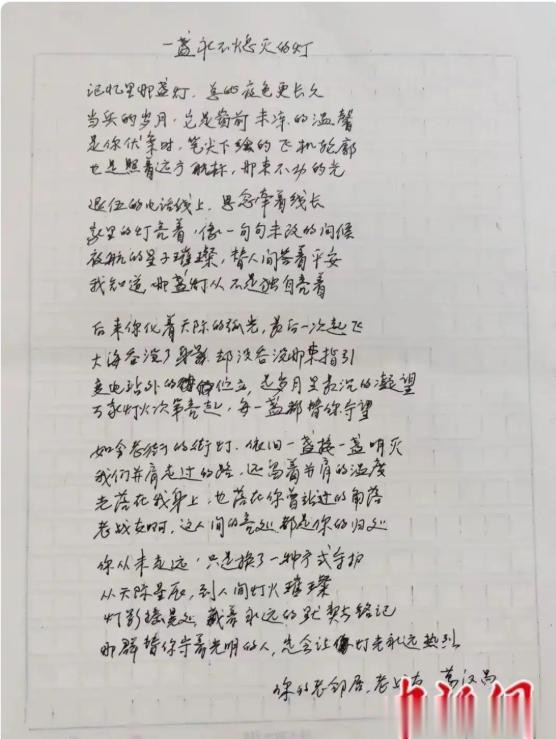 一盏永不熄灭的灯
记忆里那盏灯，总比夜色更长久
当兵的岁月，它是窗前未凉的温馨
是你伏案时，笔尖下绘的飞机轮廓
也是照着远方航标，那束不动的光
退伍的电话线上，思念牵着线长
家里的灯亮着，像一句句未改的问候
夜航的星子璀璨，替人间答着平安
我知道，那盏灯从不是独自亮着
后来你化着天际的弧光，最后一次起飞
大海吞没了身影 却没吞没那束指引
变电站外的伫立，是岁月里最沉的凝望
万家灯火次第亮起，每一盏都替你守望
如今老街的街灯，依旧一盏接一盏明灭
我们并肩走过的路，还留着并肩的温度
光落在我身上，也落在你曾站过的角落
老战友啊，这人间的亮处 都是你的归处
你从未走远，只是换了一种方式守护
从天际星辰，到人间灯火璀璨
灯影摇晃处 藏着永远的默契与铭记
那群替你守着光明的人，总会让灯光永远热烈
你的老邻居，老战友 葛汉昌
中新网